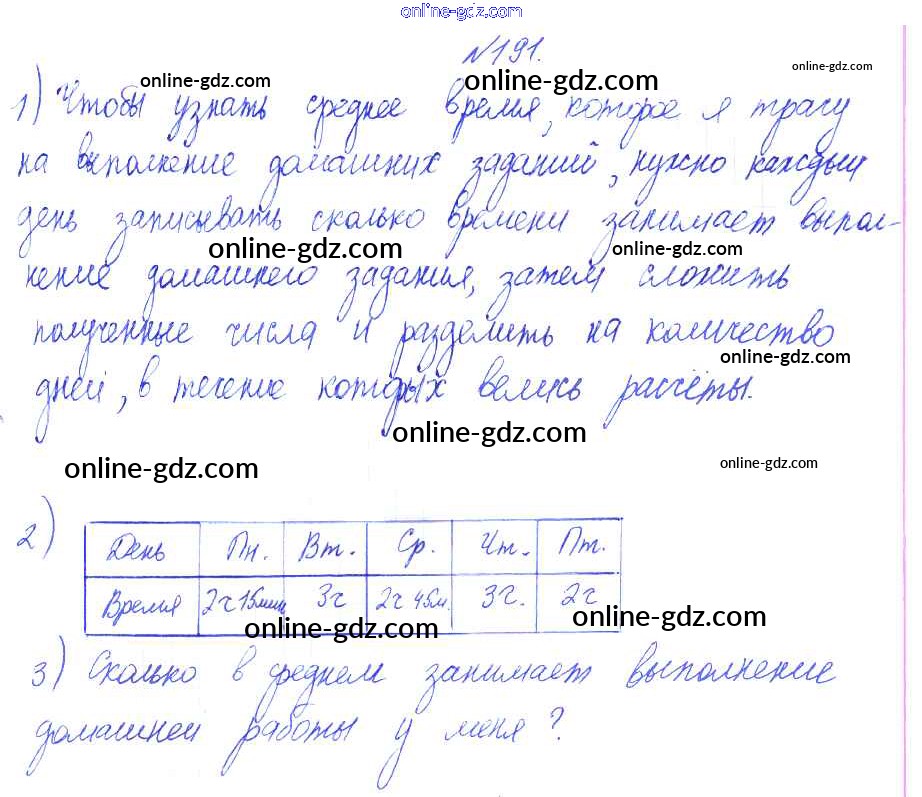 online-gdz.com
№191.
online-gdz.com online-gdz.com online-gdz.com
1) Чтобы узнать среднее время, которое я трачу
на выполнение домашних заданий, нужно каждый
день записывать сколько времени занимает выпол-
online-gdz.com online-gdz.com
нение домашнего задания, затем сложить
полученные числа и разделить на количество
online-gdz.com
дней, в течение которых велись расчёты.
online-gdz.com
online-gdz.com online-gdz.com
2)
День Пн. Вт. Ср. Чт. Пт.
Время 2ч 15мин 3ч 2ч 45м. 3ч. 2ч
online-gdz.com online-gdz.com
3) Сколько в среднем занимает выполнение
домашней работы у меня?
online-gdz.com online-gdz.com